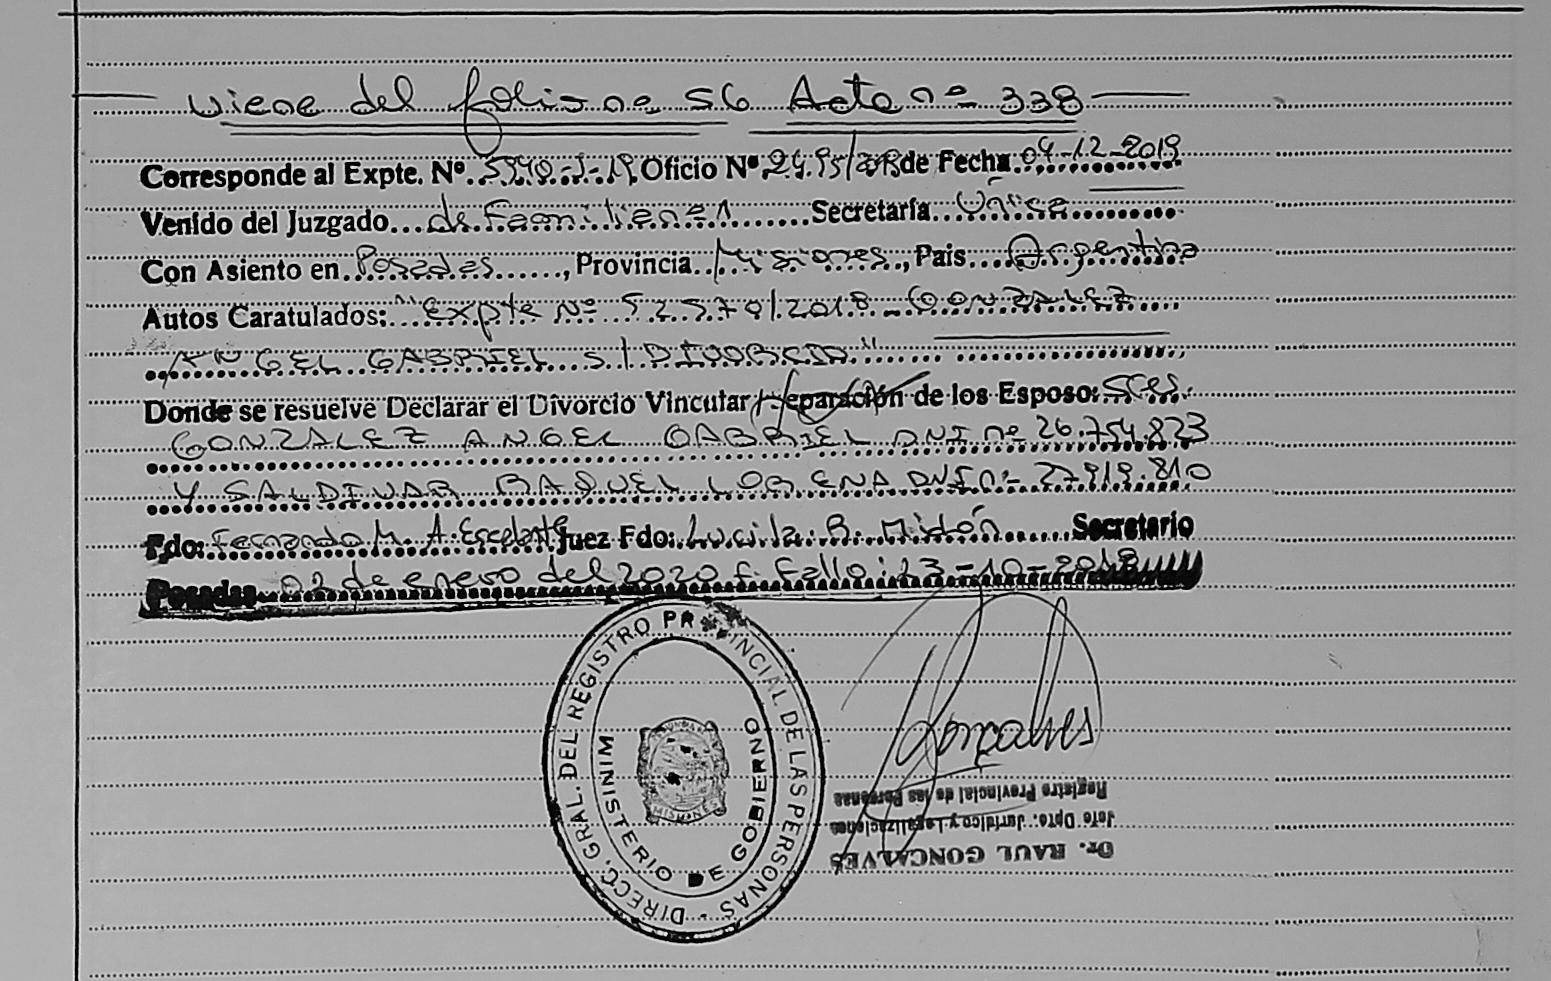 Viene del folio nº 56 Acta nº 338
Corresponde al Expte. Nº 5940-J-19 Oficio Nº 2495/2018 de Fecha 04-12-2019
Venido del Juzgado de Familia nº 1 Secretaría Única
Con Asiento en Posadas, Provincia Misiones, País Argentina
Autos Caratulados: "Expte Nº 52570/2018 - GONZALEZ
ANGEL GABRIEL S/ DIVORCIO"
Donde se resuelve Declarar el Divorcio Vincular / Separación de los Esposo: Sres.
GONZALEZ ANGEL GABRIEL DNI nº 26.754.823
Y SALDIVAR RAQUEL LORENA DNI nº 27.919.810
Fdo: Fernando M. A. Escalante Juez Fdo: Lucila R. Midón Secretario
Posadas 02 de enero del 2020 f. fallo: 23-10-2018
DIRECC. GRAL. DEL REGISTRO PROVINCIAL DE LAS PERSONAS
MINISTERIO DE GOBIERNO
MISIONES
Gonçalves
Dr. RAUL GONCALVES
Jefe Dpto. Jurídico y Legalizaciones
Registro Provincial de las Personas